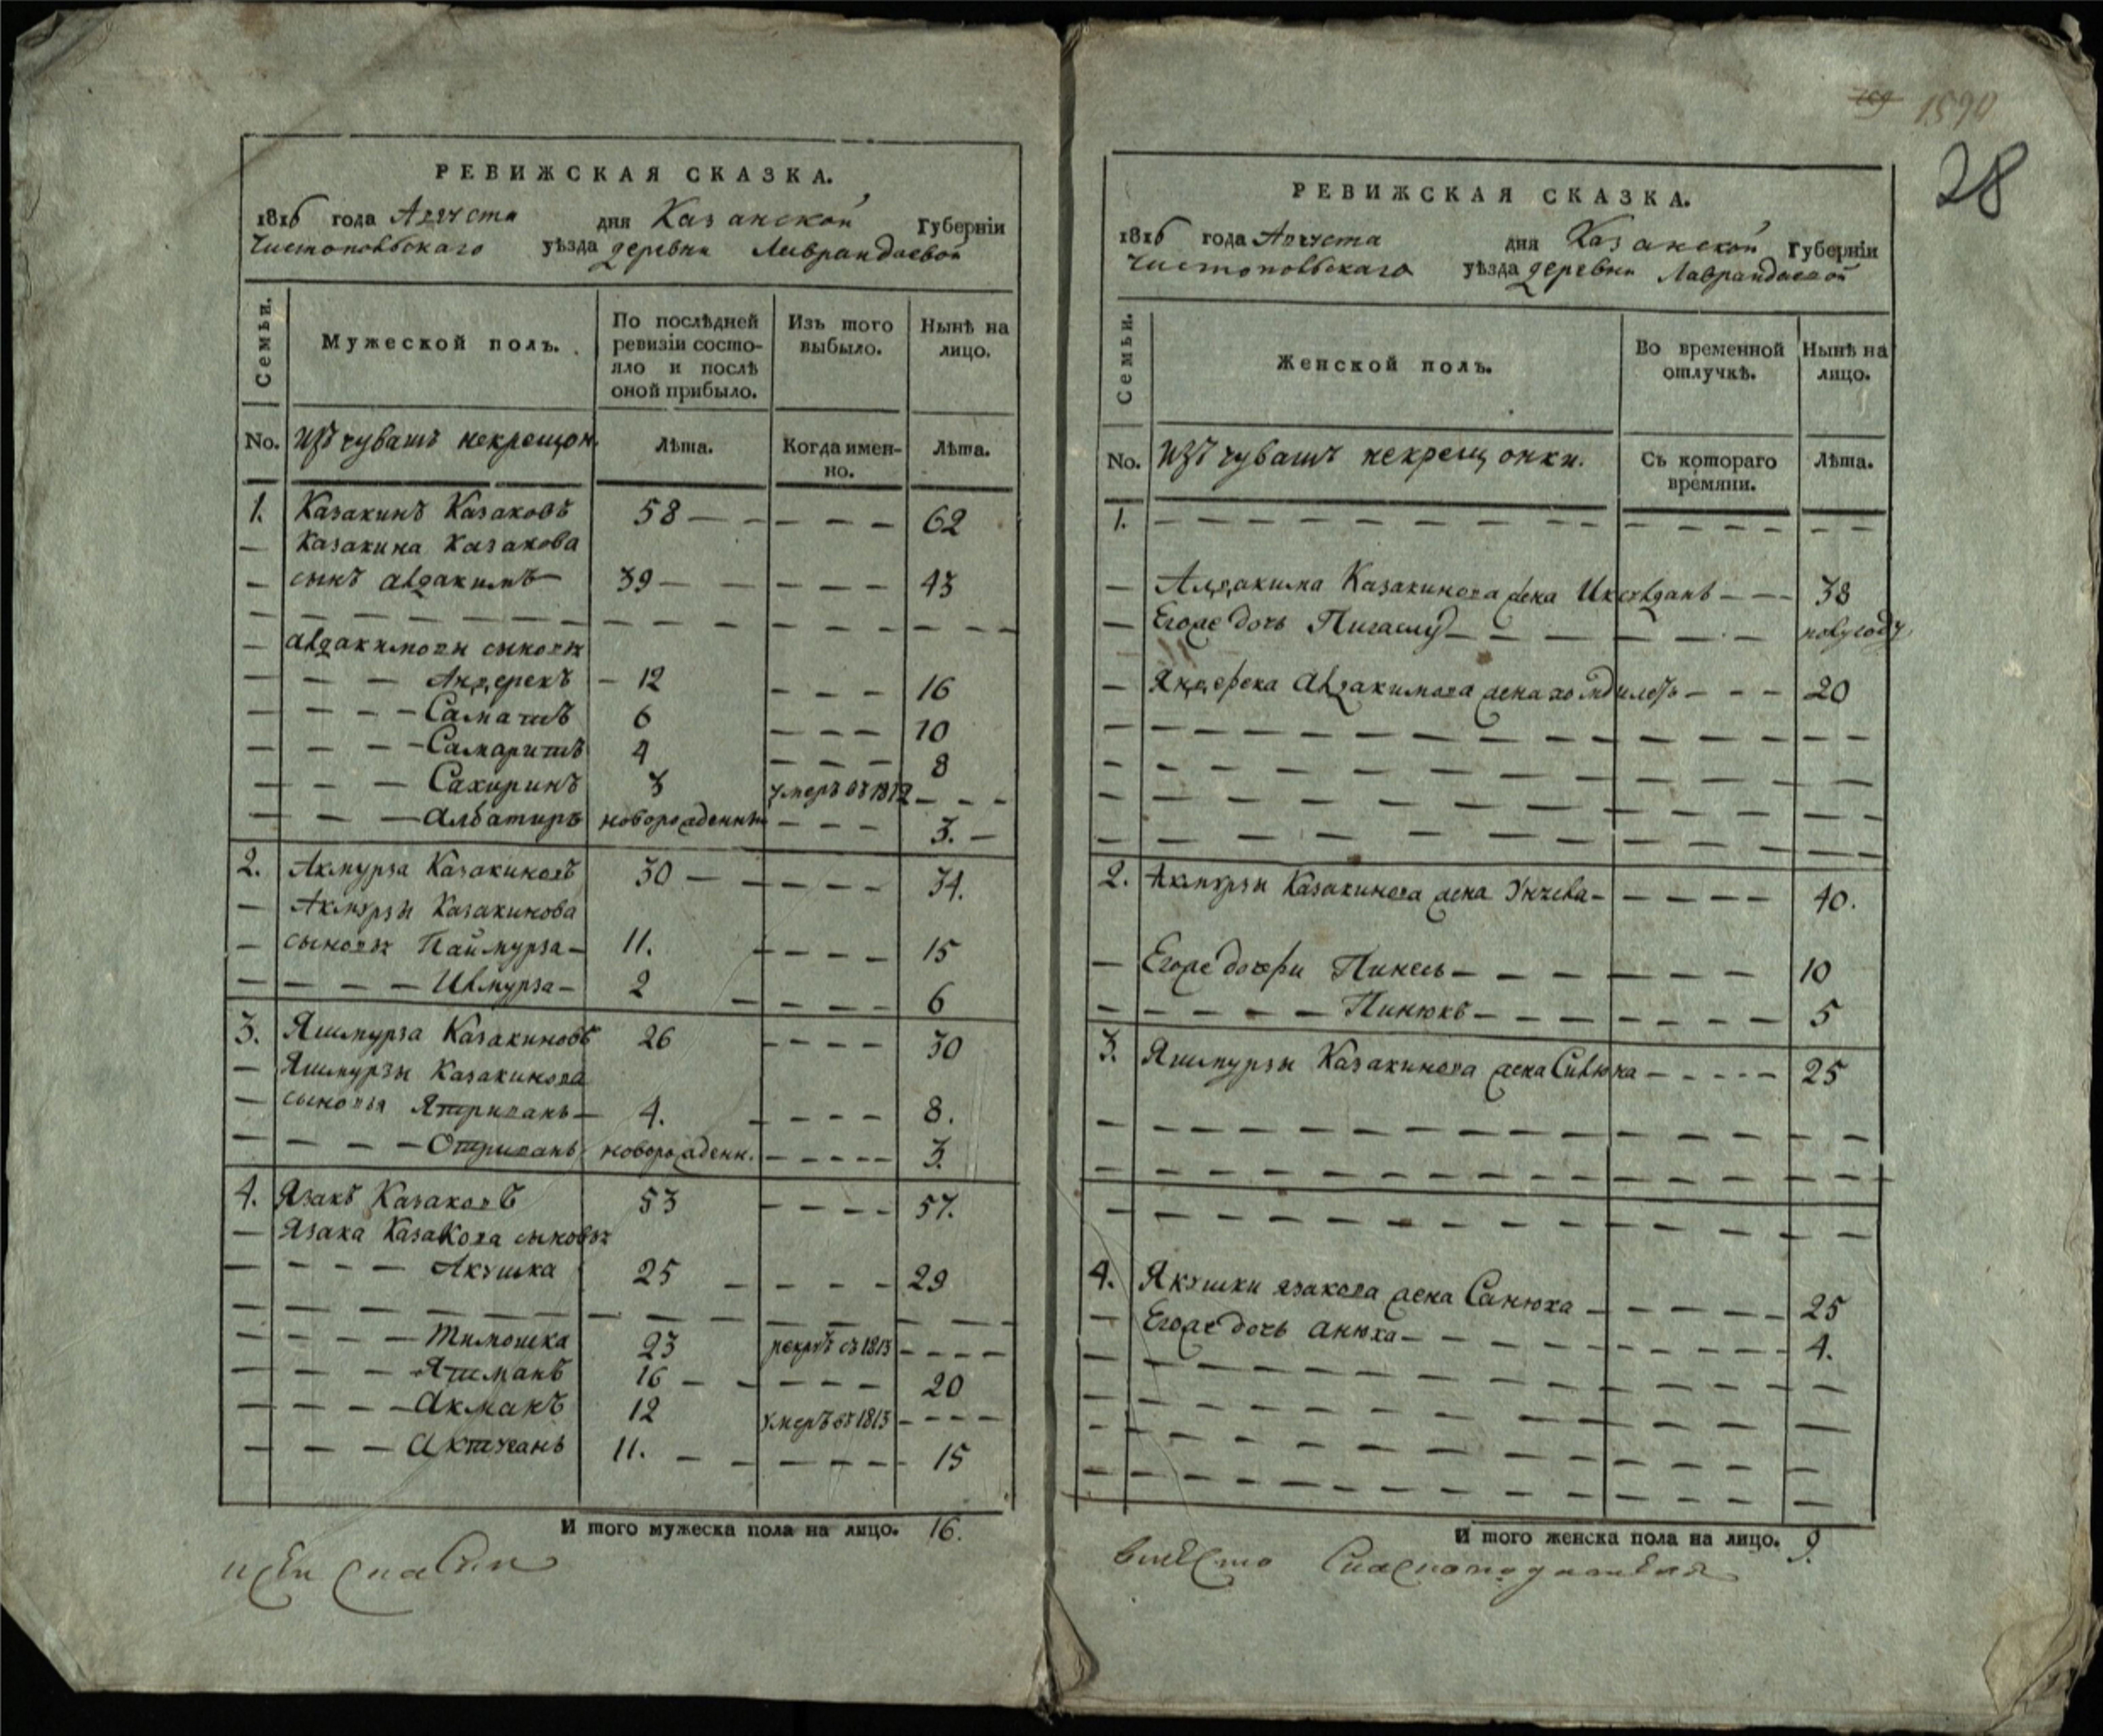 РЕВИЖСКАЯ СКАЗКА.
1816 года Августа дня Казанской Губерніи
Чистопольскаго уѣзда деревни Лаврандаевой
Семьи.
Мужеской полъ.
По послѣдней ревизіи состо-
яло и послѣ
оной прибыло.
Изъ того
выбыло.
Нынѣ на
лицо.
No. Изъ чувашъ некрещон
Лѣта.
Когда имен-
но.
Лѣта.
1. Казакинъ Казаковъ 58 62
Казакина Казакова
сынъ Алдакимъ 39 43
Алдакимовы сыновья
Андерекъ 12 16
Саматъ 6 10
Самаритъ 4 8
Сахиринъ 3 умеръ въ 1812
Албатиръ новорожденны 3.
2. Акмурза Казакиновъ 30 34.
Акмурзы Казакинова
сыновья Паймурза 11. 15
Ивмурза 2 6
3. Яшмурза Казакиновъ 26 30
Яшмурзы Казакинова
сыновья Ятриванъ 4. 8.
Отриванъ новорожденн. 3.
4. Язакъ Казаковъ 53 57.
Язака Казакова сыновья
Акушка 25 29
Тимошка 23 рекрутъ въ 1813
Ятманъ 16 20
Акманъ 12 умеръ въ 1813
Актуганъ 11. 15
И того мужеска пола на лицо. 16.
1590
28
РЕВИЖСКАЯ СКАЗКА.
1816 года Августа дня Казанской Губерніи
Чистопольскаго уѣзда деревни Лаврандаевой
Семьи.
Женской полъ.
Во временной
отлучкѣ.
Нынѣ на
лицо.
No. Изъ чувашъ некрещонки.
Съ котораго
времяни.
Лѣта.
1.
Алдакима Казакинова жена 38
Егоже дочь Пигаслу полугоду
Яндерека Алдакимова жена 20
2. Акмурзы Казакинова жена Унчева 40.
Егоже дочери Пинесь 10
Пинюкъ 5
3. Яшмурзы Казакинова жена Сивюка 25
4. Якушки Язакова жена Санюха 25
Егоже дочь Анюха 4.
И того женска пола на лицо. 9.
вмѣсто